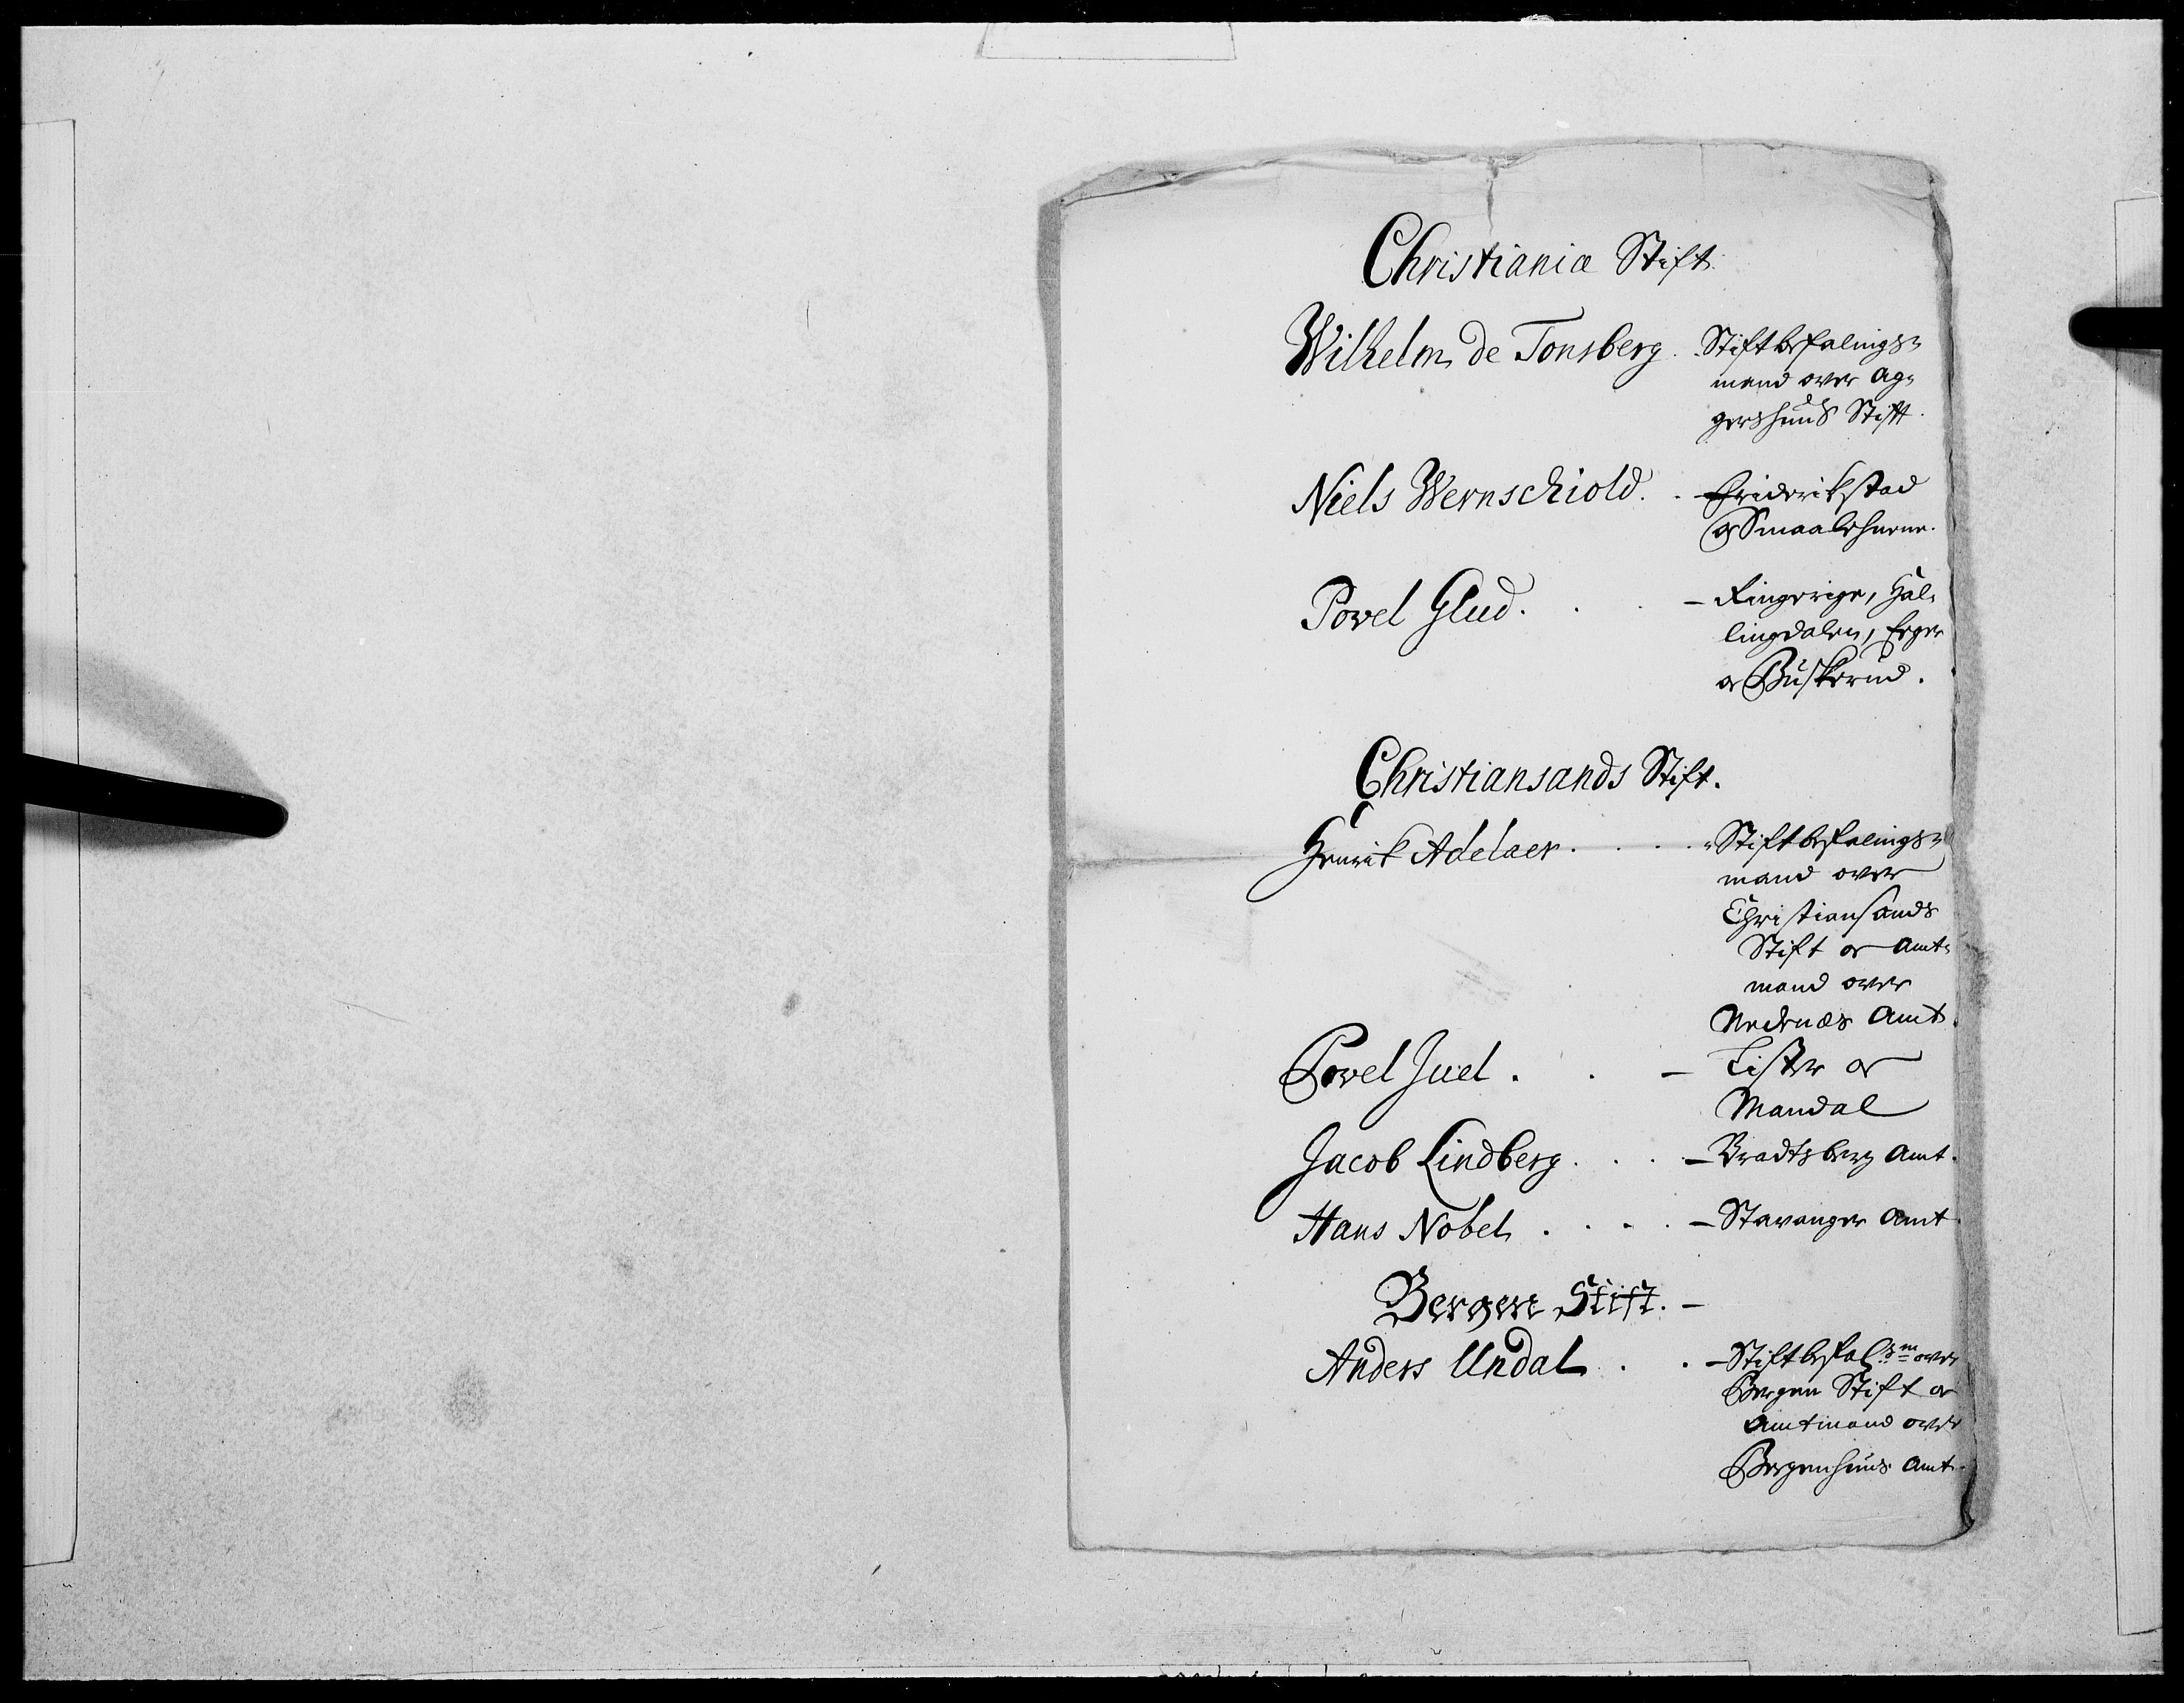 Christianiæ Stift
Wilhelm de Tonsberg. Stiftbefalings=
mand over Ag=
gershuus Stift.
Niels Wernschiold. . - Friderikstad
og Smaalehnene.
Povel Glud. . . - Ringerige, Hal=
lingdalen, Eger
og Buskerud.
Christiansands Stift.
Henrik Adelaer. . . . Stiftbefalings=
mand over
Christiansands
Stift og Amt=
mand over
Nedenæs Amt.
Povel Juel. . - Lister og
Mandal
Jacob Lindberg. . . - Bradtsberg Amt.
Hans Nobel. . . . - Stavanger Amt
Bergen Stift. -
Anders Undal. . - Stiftbefal:s m over
Bergen Stift og
Amtmand over
Bergenhuus Amt.